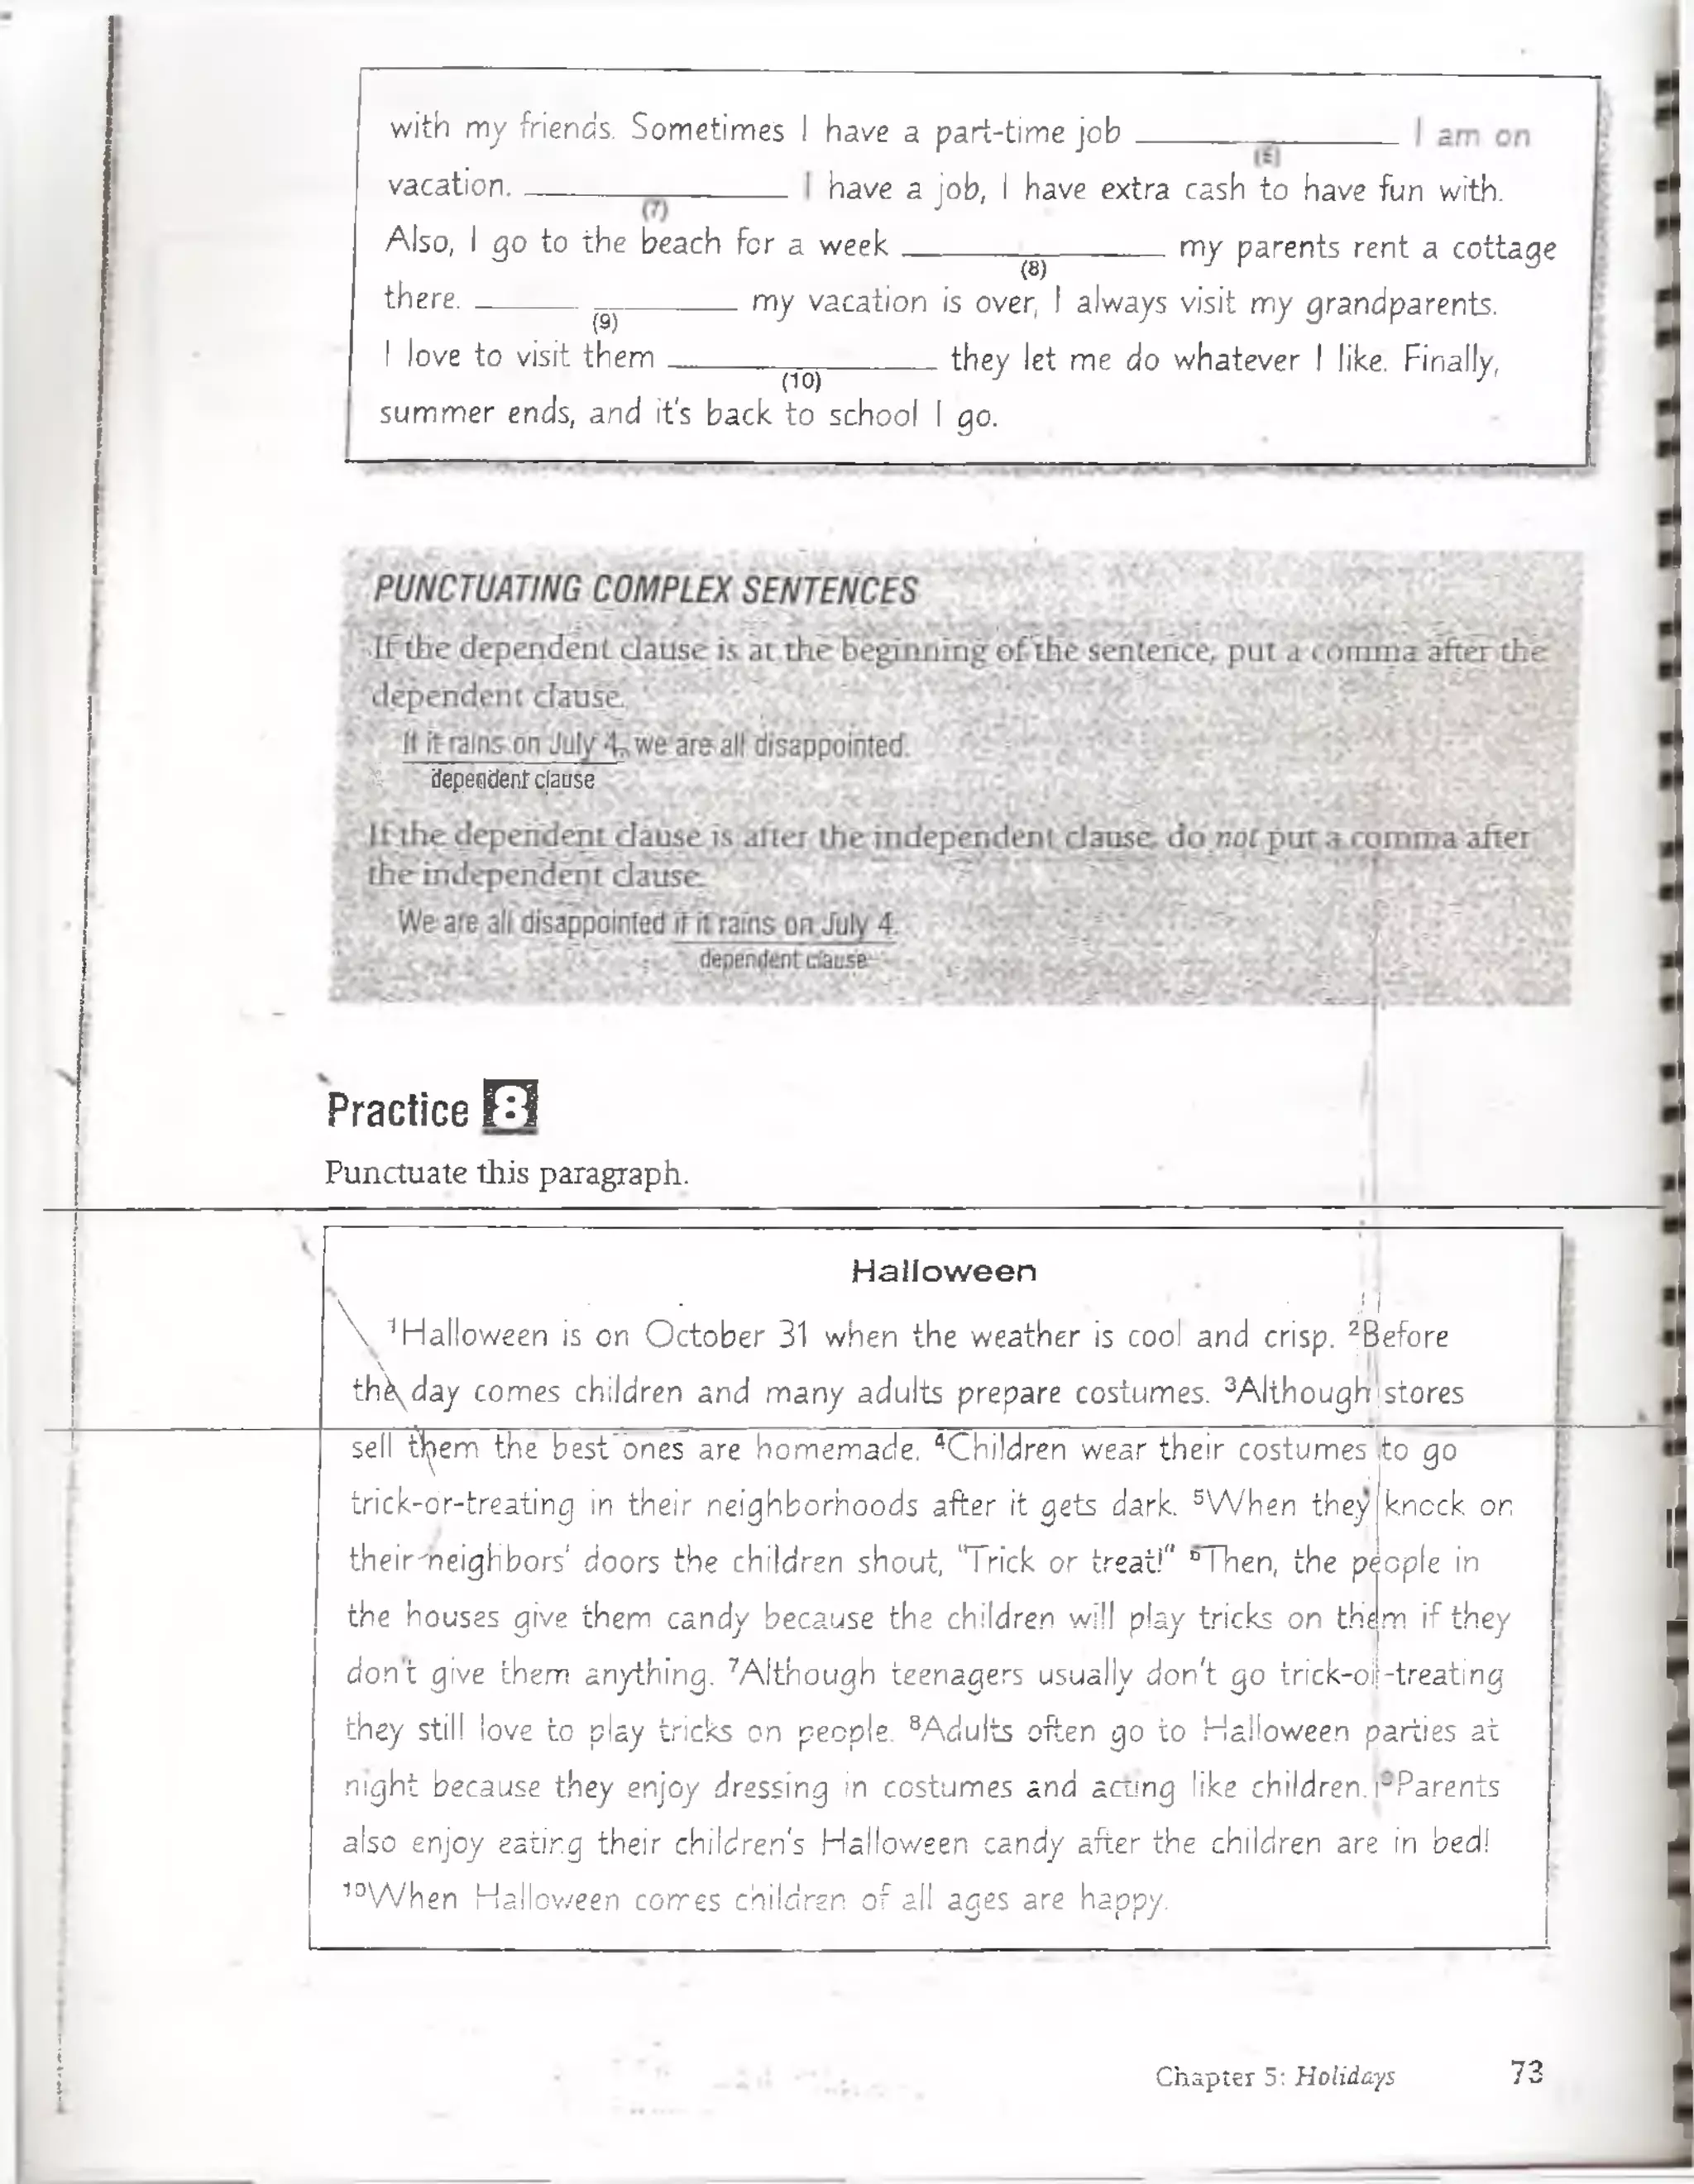 with my friends. Sometimes I have a part-time job ____ I am on
(6)
vacation. ____ I have a job, I have extra cash to have fun with.
(7)
Also, I go to the beach for a week ____ my parents rent a cottage
(8)
there. ____ my vacation is over, I always visit my grandparents.
(9)
I love to visit them ____ they let me do whatever I like. Finally,
(10)
summer ends, and it's back to school I go.
PUNCTUATING COMPLEX SENTENCES
If the dependent clause is at the beginning of the sentence, put a comma after the
dependent clause.
If it rains on July 4, we are all disappointed.
dependent clause
If the dependent clause is after the independent clause, do not put a comma after
the independent clause.
We are all disappointed if it rains on July 4.
dependent clause
Practice 8
Punctuate this paragraph.
Halloween
¹Halloween is on October 31 when the weather is cool and crisp. ²Before
the day comes children and many adults prepare costumes. ³Although stores
sell them the best ones are homemade. ⁴Children wear their costumes to go
trick-or-treating in their neighborhoods after it gets dark. ⁵When they knock on
their neighbors' doors the children shout, "Trick or treat!" ⁶Then, the people in
the houses give them candy because the children will play tricks on them if they
don't give them anything. ⁷Although teenagers usually don't go trick-or-treating
they still love to play tricks on people. ⁸Adults often go to Halloween parties at
night because they enjoy dressing in costumes and acting like children. ⁹Parents
also enjoy eating their children's Halloween candy after the children are in bed!
¹⁰When Halloween comes children of all ages are happy.
Chapter 5: Holidays 73